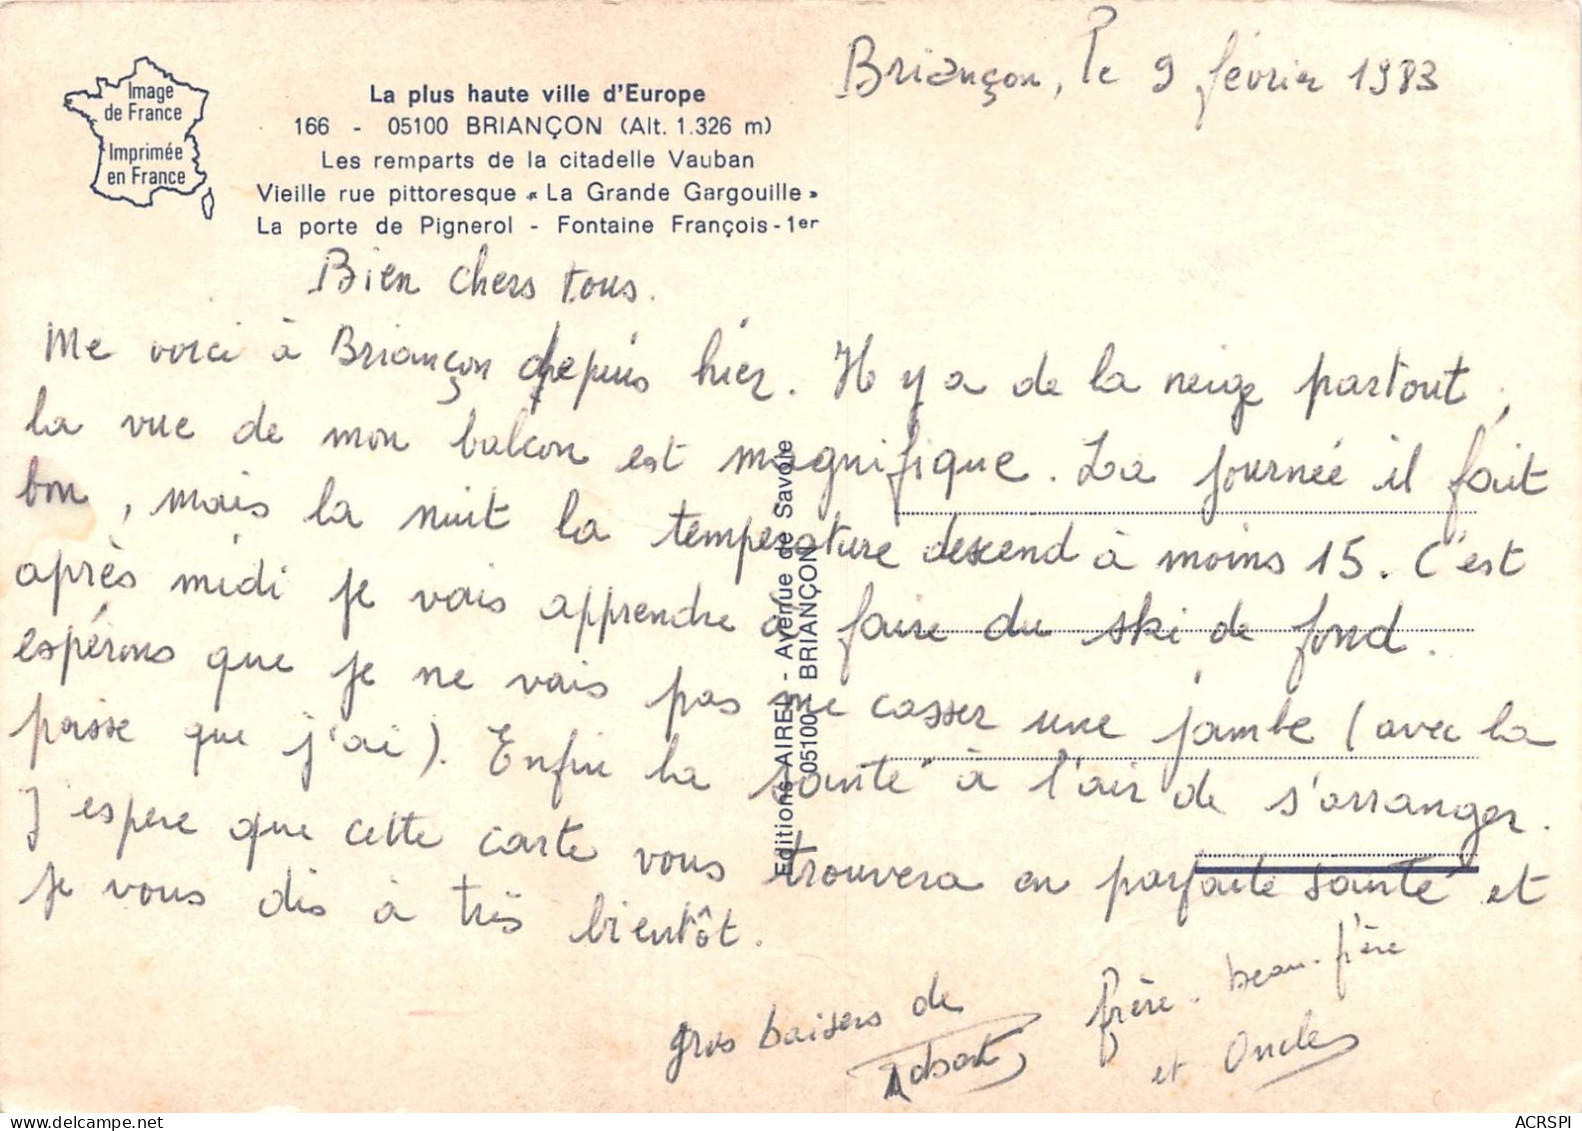 Briançon, le 9 février 1983
Image
de France
Imprimée
en France
La plus haute ville d'Europe
166 - 05100 BRIANÇON (Alt. 1.326 m)
Les remparts de la citadelle Vauban
Vieille rue pittoresque « La Grande Gargouille »
La porte de Pignerol - Fontaine François-1er
Bien chers tous.
Me voici à Briançon depuis hier. Il y a de la neige partout,
la vue de mon balcon est magnifique. La journée il fait
bon, mais la nuit la température descend à moins 15. C'est
après midi je vais apprendre à faire du ski de fond.
espérons que je ne vais pas me casser une jambe (avec la
poisse que j'ai). Enfin la santé à l'air de s'arranger.
J'espere que cette carte vous trouvera en parfaite santé et
je vous dis à très bientôt.
gros baisers de
frère. beau-frère
et Oncle
Editions AIREL - Avenue de Savoie
05100 BRIANÇON
ACRSPI